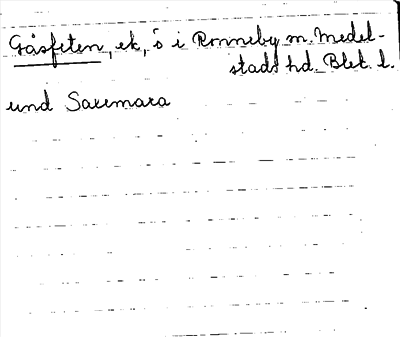 Gåsfeten, ek, ö i Ronneby sn. Medel-
stads hd. Blek. l.
und Saxemara